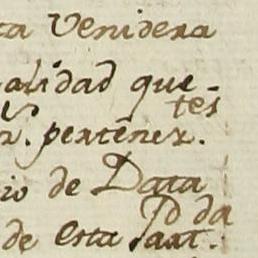 ta Venidera
alidad que-
n. pertenez.tes
io de Data
de esta Part.da